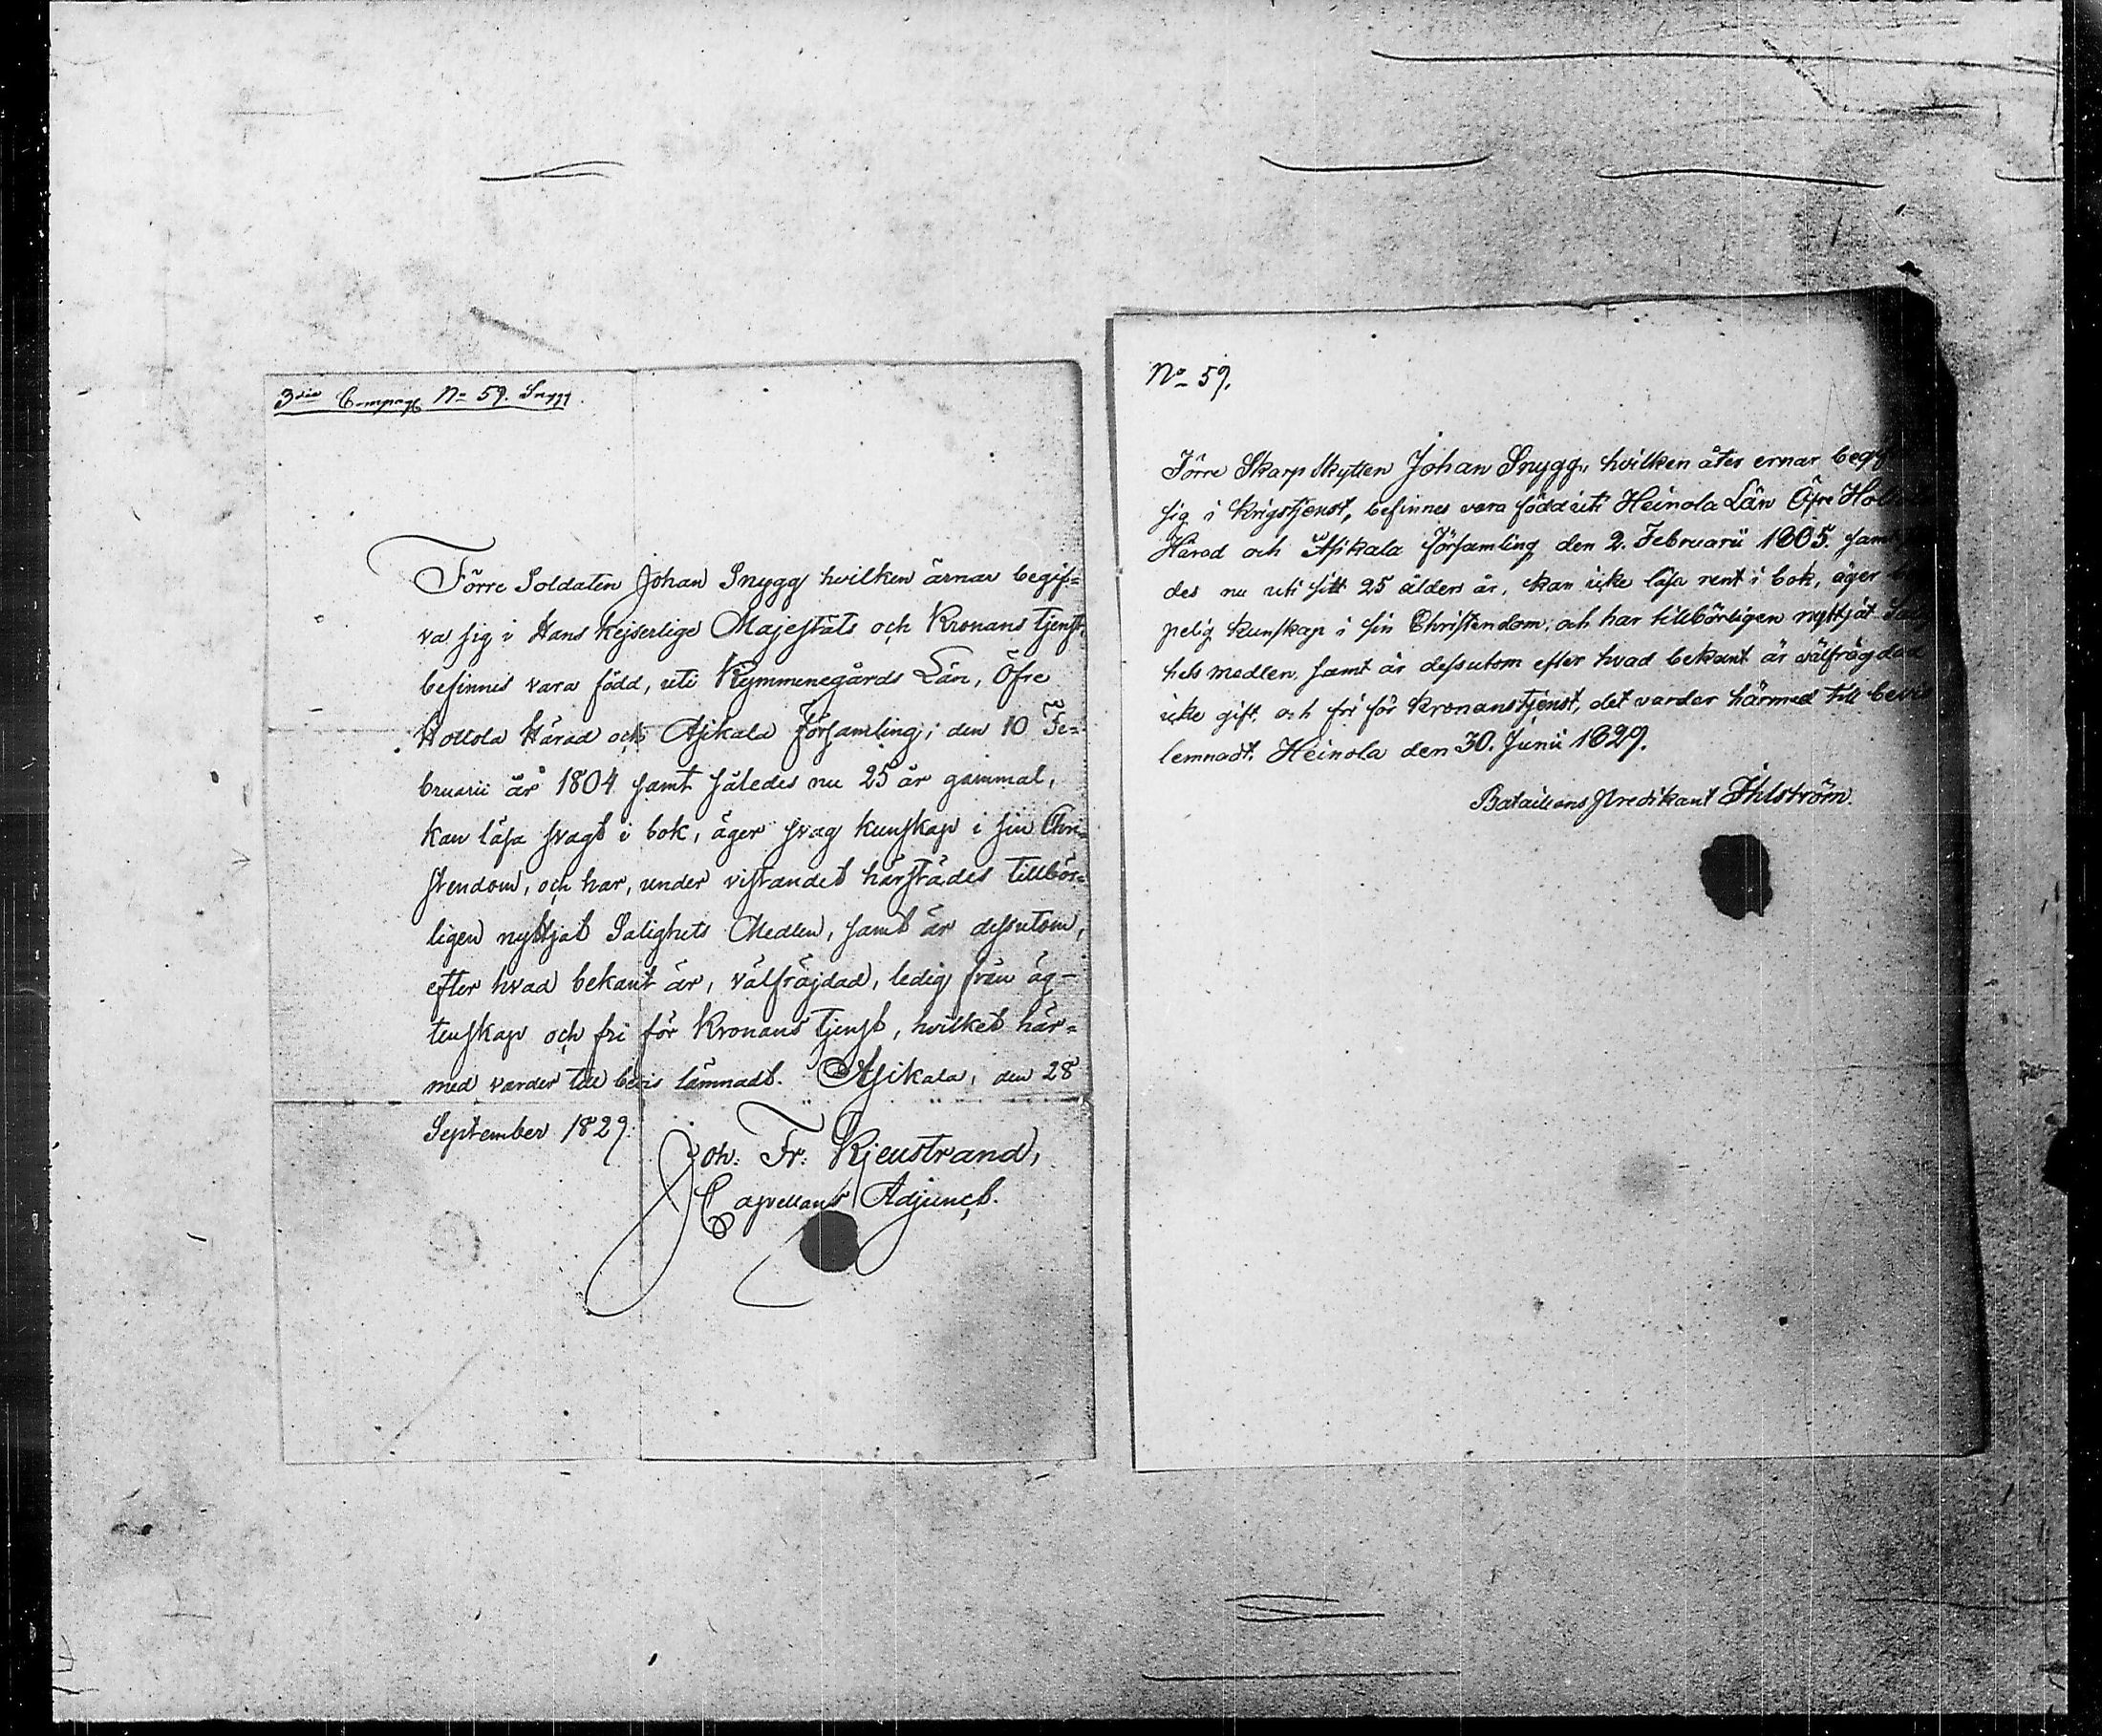 3die Compag N° 59. Snygg.
Förre Soldaten Johan Snygg hvilken ärnar begif=
va sig i Hans Kejserlige Majestäts och Kronans tjenst,
befinnes vara född, uti Kymmenegårds Län, Öfre
Hollola Härad och Asikala Församling, den 10 Fe=
bruarii år 1804 samt således nu 25 år gammal,
kan läsa svagt i bok, äger svag kunskap i sin Chri=
stendom, och har, under vistandet härstädes tillbör=
ligen nyttjat Salighets Medlen, samt är dessutom,
efter hvad bekant är, välfräjdad, ledig från äg-
tenskap och fri för Kronans tjenst, hvilket här=
med varder till bevis lämnadt. Asikala, den 28
September 1829.
Joh: Fr: Kjeustrand,
Capellans Adjunct.
N° 59.
Förre Skarp Skytten Johan Snygg, hvilken åter ernar
sig i Krigstjenst, befinnes vara född uti Heinola Län Öfre
Härad och Asikala Församling den 2. Februarii 1805.
des nu uti sitt 25 ålders år, kan icke läsa rent i bok, äger
pelig kunskap i sin Christendom, och har tillbörligen nyttjat
hets medlen, samt är dessutom efter hvad bekant är välfrägdad
icke gift, och fri för Kronanstjenst, det varder härmed till bevis
lemnadt. Heinola den 30. Junii 1829.
Batailions Predikant Ihlström.